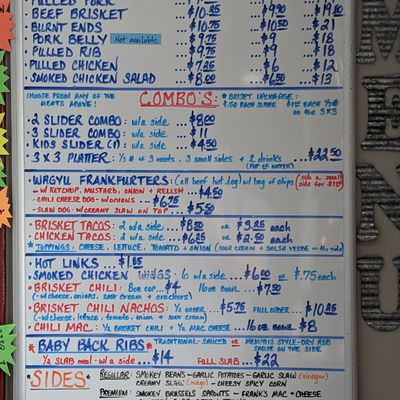 PULLED PORK
• BEEF BRISKET $10.25 $9.90 $19.80
• BURNT ENDS $10.75 $10.50 $21
• PORK BELLY Not Available $9.75 $9 $18
• PULLED RIB $9.75 $9 $18
• PULLED CHICKEN $7.25 $6 $12
• SMOKED CHICKEN SALAD $8.00 $6.50 $13
CHOOSE FROM ANY OF THE MEATS ABOVE!
COMBO'S:
* BRISKET UPCHARGE: $.50 EACH SLIDER
• 2 SLIDER COMBO: w/a side $8.00
• 3 SLIDER COMBO: w/a side $11
• KIDS SLIDER (1) w/a side $4.50
• 3 x 3 PLATTER: ⅓ # OF 3 MEATS, 3 small sides + 2 drinks $22.50
• WAGYU FRANKFURTERS: (all beef hot dog) w/ bag of chips
- W/ KETCHUP, MUSTARD, ONION + RELISH $4.50
- CHILI CHEESE DOG - W/ONIONS $6.75
- SLAW DOG - W/CREAMY SLAW ON TOP $5.50
• BRISKET TACOS: 2 w/a side $8.50 or $3.25 each
• CHICKEN TACOS: 2 w/a side $6.25 or $2.50 each
* TOPPINGS: CHEESE, LETTUCE, TOMATO + ONION (SOUR CREAM + SALSA VERDE on the side)
• HOT LINKS $1.85
• SMOKED CHICKEN WINGS 6 w/a side $6.00 or $.75 EACH
• BRISKET CHILI: 8oz CUP $4 16oz BOWL $7.50
(-w/cheese, onions, sour cream + crackers)
• BRISKET CHILI NACHOS: ½ ORDER $5.75 FULL ORDER $10.25
(-w/cheese, lettuce, tomato, onion + sour cream)
• CHILI MAC: ½ BRISKET CHILI + ½ MAC CHEESE 16oz BOWL $8
* BABY BACK RIBS * TRADITIONAL-SAUCED OR MEMPHIS STYLE-DRY RUB
½ SLAB meal - w/a side $14 FULL SLAB $22
* SIDES * REGULAR: SMOKEY BEANS - GARLIC POTATOES - GARLIC SLAW (vinegar)
CREAMY SLAW (mayo) - CHEESY SPICY CORN
PREMIUM: SMOKEY BRUSSELS SPROUTS - FRANK'S MAC + CHEESE
MENU